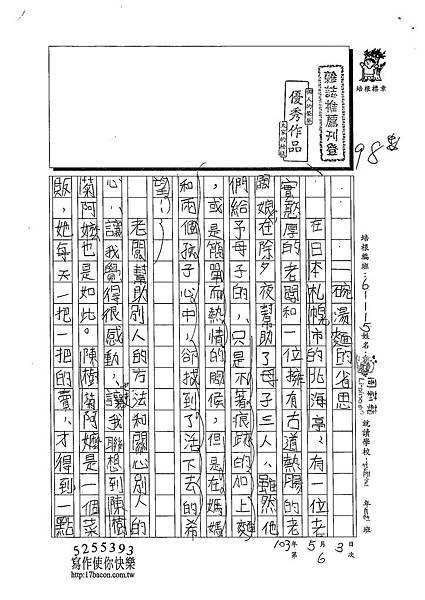 雜誌推薦刊登
優秀作品
培根標章
98
一碗湯麵的省思
在日本札幌市的北海亭,有一位老
實憨厚的老闆和一位擁有古道熱腸的老
闆娘在除夕夜幫助了母子三人,雖然他
們給予母子的,只是不著痕跡的加上麵
,或是簡單而熱情的問候,但是在媽媽
和兩個孩子心中,卻找到了活下去的希
望!
老闆幫助別人的方法和關心別人的
心,讓我覺得很感動,讓我聯想到陳樹
菊阿嬤也是如此。陳樹菊阿嬤是一個菜
販,她每天一把一把的賣,才得到一點
培根編班:6115
姓名
就讀學校:
年 班
103年 5月 3日
第 6 次
5255393
寫作使你快樂
17bacon.com.tw